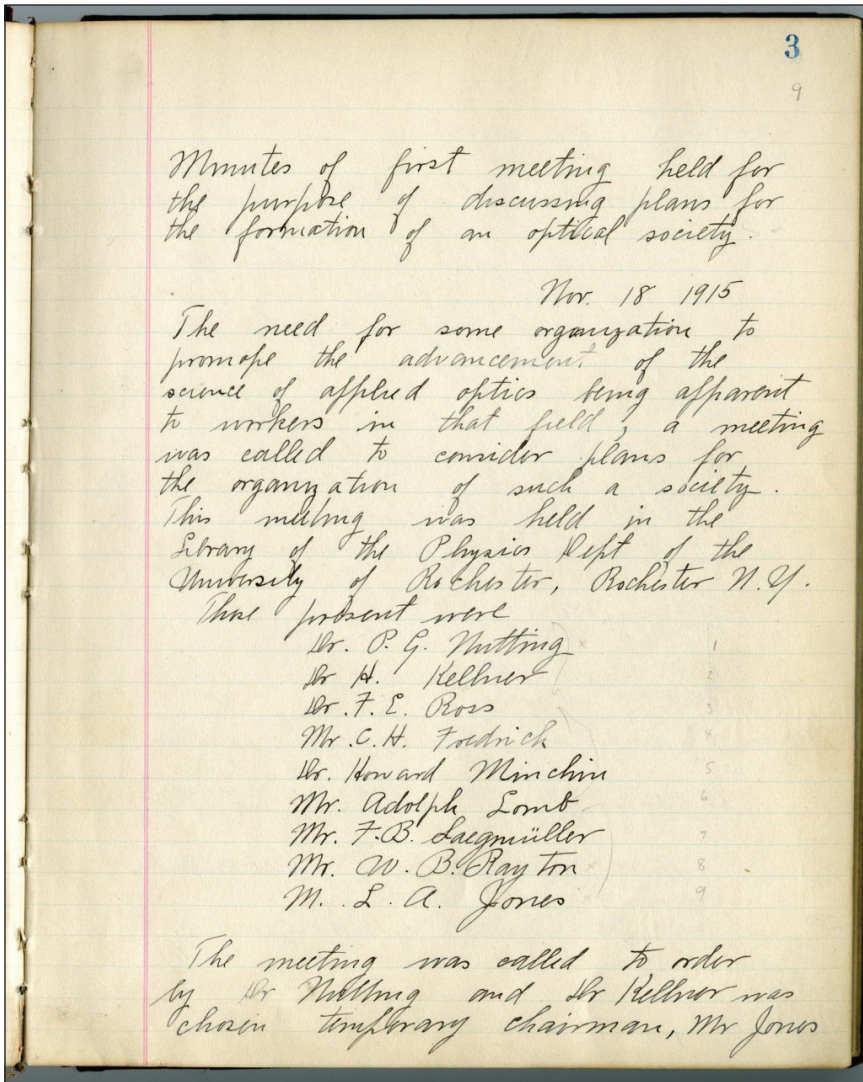 3
9
Minutes of first meeting held for
the purpose of discussing plans for
the formation of an optical society.
Nov. 18 1915
The need for some organization to
promope the advancement of the
science of applied optics being apparent
to workers in that field, a meeting
was called to consider plans for
the organization of such a society.
This meeting was held in the
Library of the Physics Dept of the
University of Rochester, Rochester N.Y.
Those present were
Dr. P. G. Nutting 1
Dr H. Kellner 2
Dr. F. E. Ross 3
Mr. C. H. Fredrick 4
Dr. Howard Minchin 5
Mr. Adolph Lomb 6
Mr. F. B. Saegmüller 7
Mr. W. B. Rayton 8
M. L. A. Jones 9
The meeting was called to order
by Dr Nutting and Dr Kellner was
chosen temporary chairman, Mr Jones